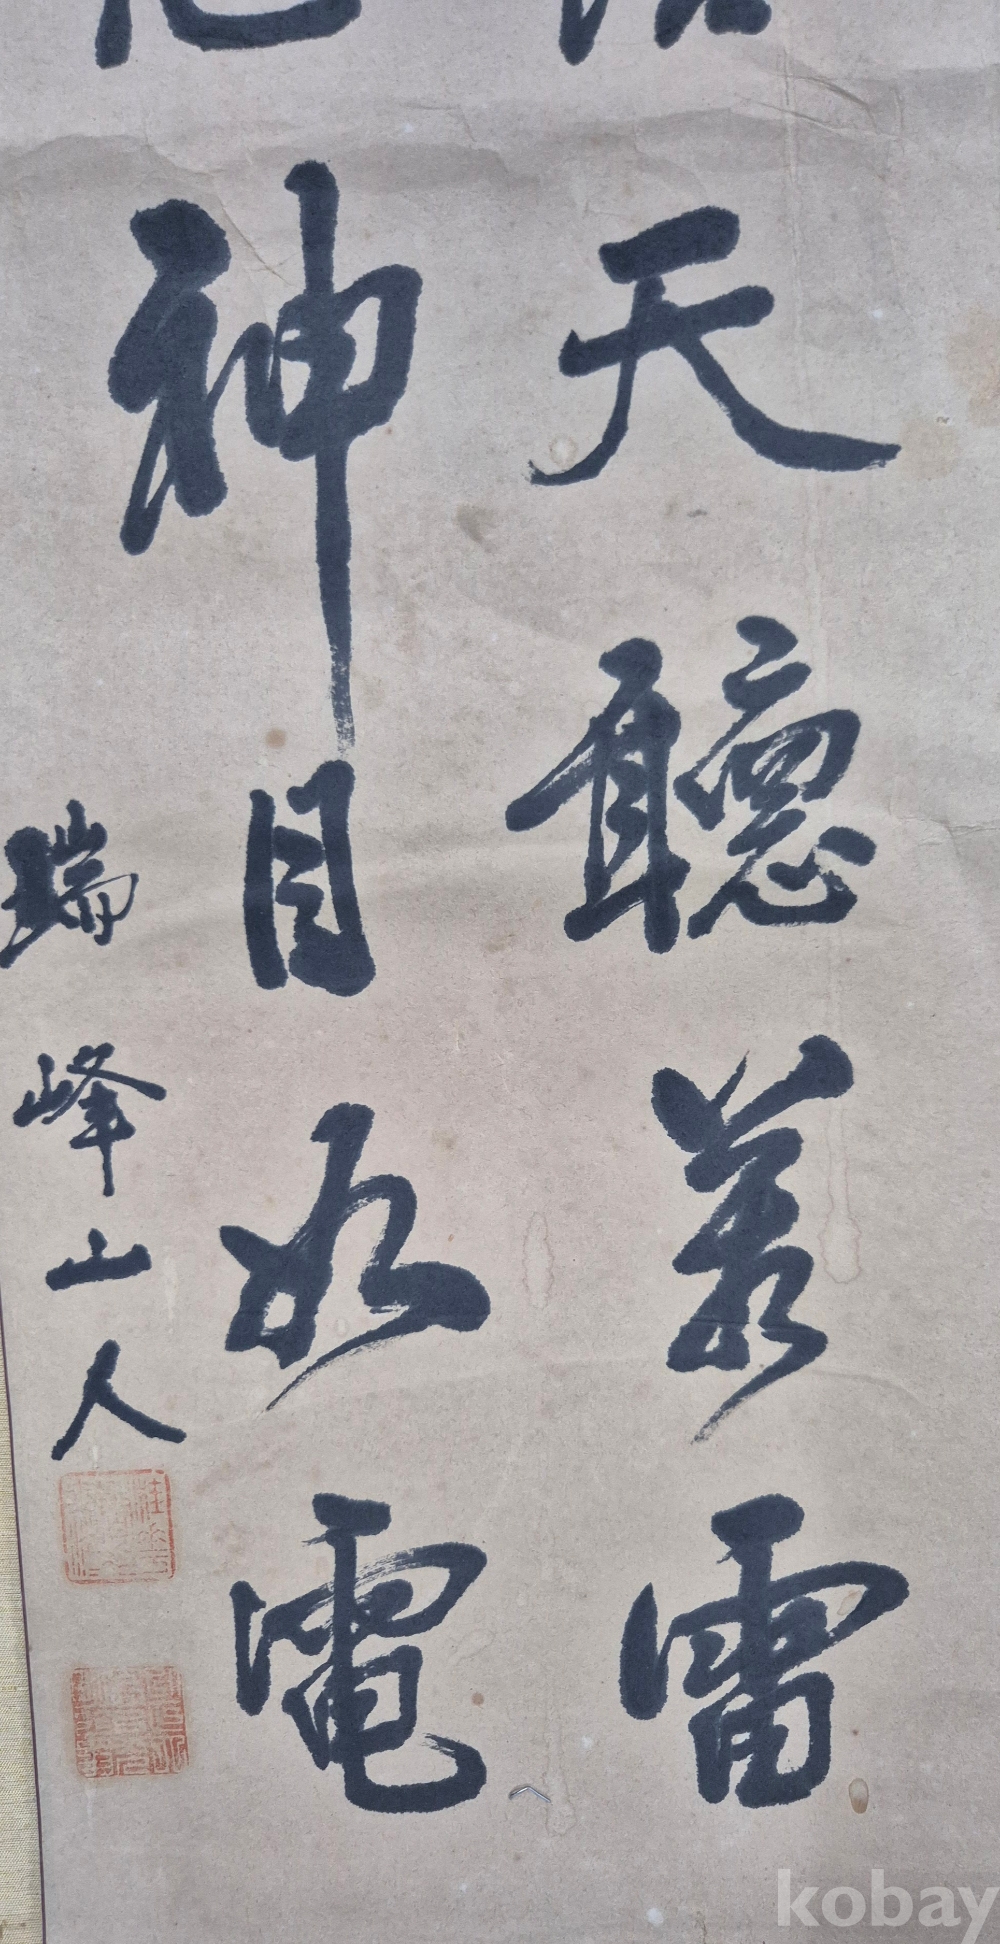 天聽若雷
神目如電
瑞峰山人
kobay